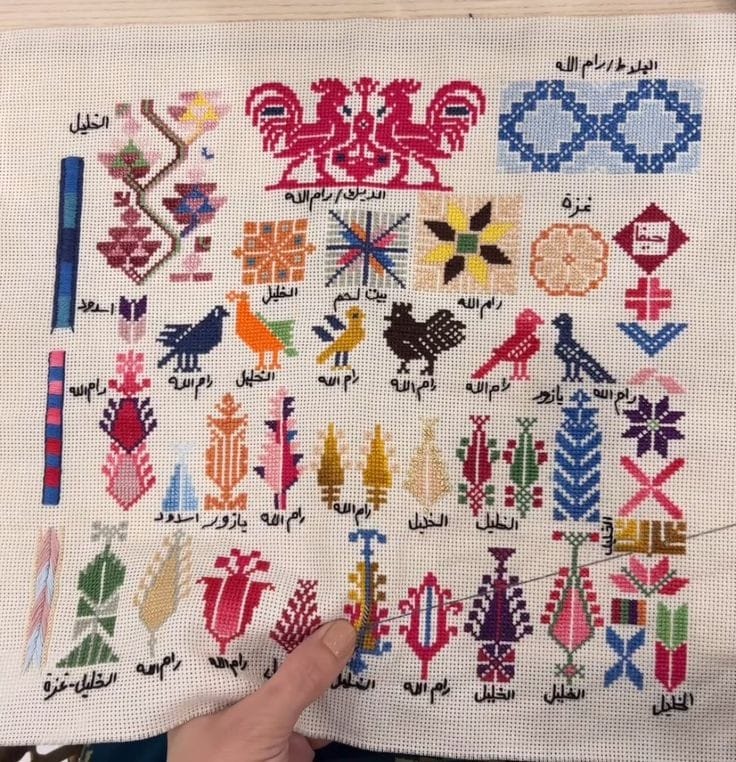 البلاط/رام الله
الخليل
الديك/رام الله
غزة
حيفا
الخليل
بيت لحم
رام الله
اسدود
رام الله
الخليل
رام الله
رام الله
رام الله
يازور
رام الله
رام الله
اسدود
يازور
رام الله
رام الله
الخليل
الخليل
الخليل
الخليل-غزة
رام الله
رام الله
الخليل
رام الله
الخليل
الخليل
الخليل